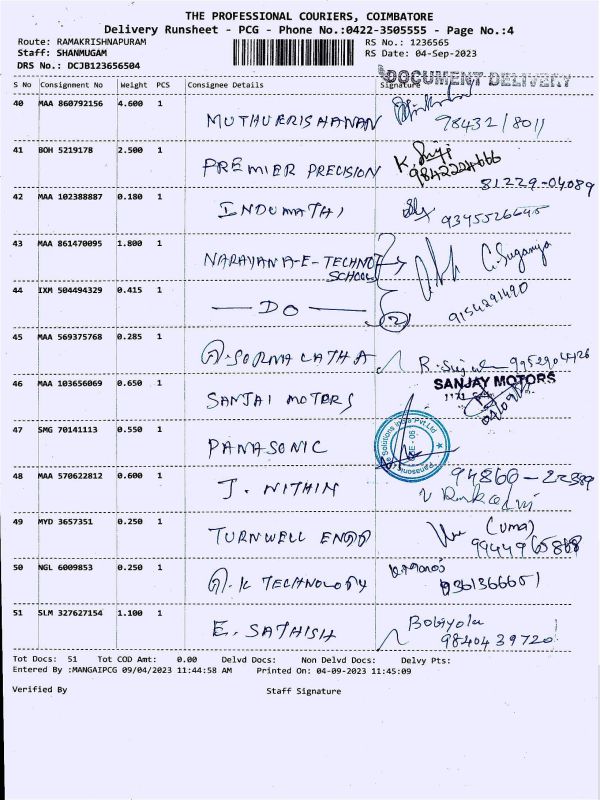 THE PROFESSIONAL COURIERS, COIMBATORE
Delivery Runsheet - PCG - Phone No.:0422-3505555 - Page No.:4
Route: RAMAKRISHNAPURAM RS No.: 1236565
Staff: SHANMUGAM RS Date: 04-Sep-2023
DRS No.: DCJB123656504
DOCUMENT DELIVERY
S No Consignment No Weight PCS Consignee Details Signature
40 MAA 860792156 4.600 1
MUTHUKRISHANAN 98432/8011
41 BOH 5219178 2.500 1
PREMIER PRECISION 9842224666
81229-04089
42 MAA 102388887 0.180 1
INDUMATHI
43 MAA 861470095 1.800 1
NARAYANA-E-TECHNO SCHOOL C. Suganya
44 IXM 504494329 0.415 1
— DO — 2 9154291490
45 MAA 569375768 0.285 1
SORNALATHA
46 MAA 103656069 0.650 1
SANJAI MOTERS SANJAY MOTORS
47 SMG 70141113 0.550 1
PANASONIC
48 MAA 570622812 0.600 1
J. NITHIN
49 MYD 3657351 0.250 1
TURNWELL ENGG (uma)
50 NGL 6009853 0.250 1
K TECHNOLOGY 9361366651
51 SLM 327627154 1.100 1
E. SATHISH 9840439720
Tot Docs: 51 Tot COD Amt: 0.00 Delvd Docs: Non Delvd Docs: Delvy Pts:
Entered By :MANGAIPCG 09/04/2023 11:44:58 AM Printed On: 04-09-2023 11:45:09
Verified By Staff Signature